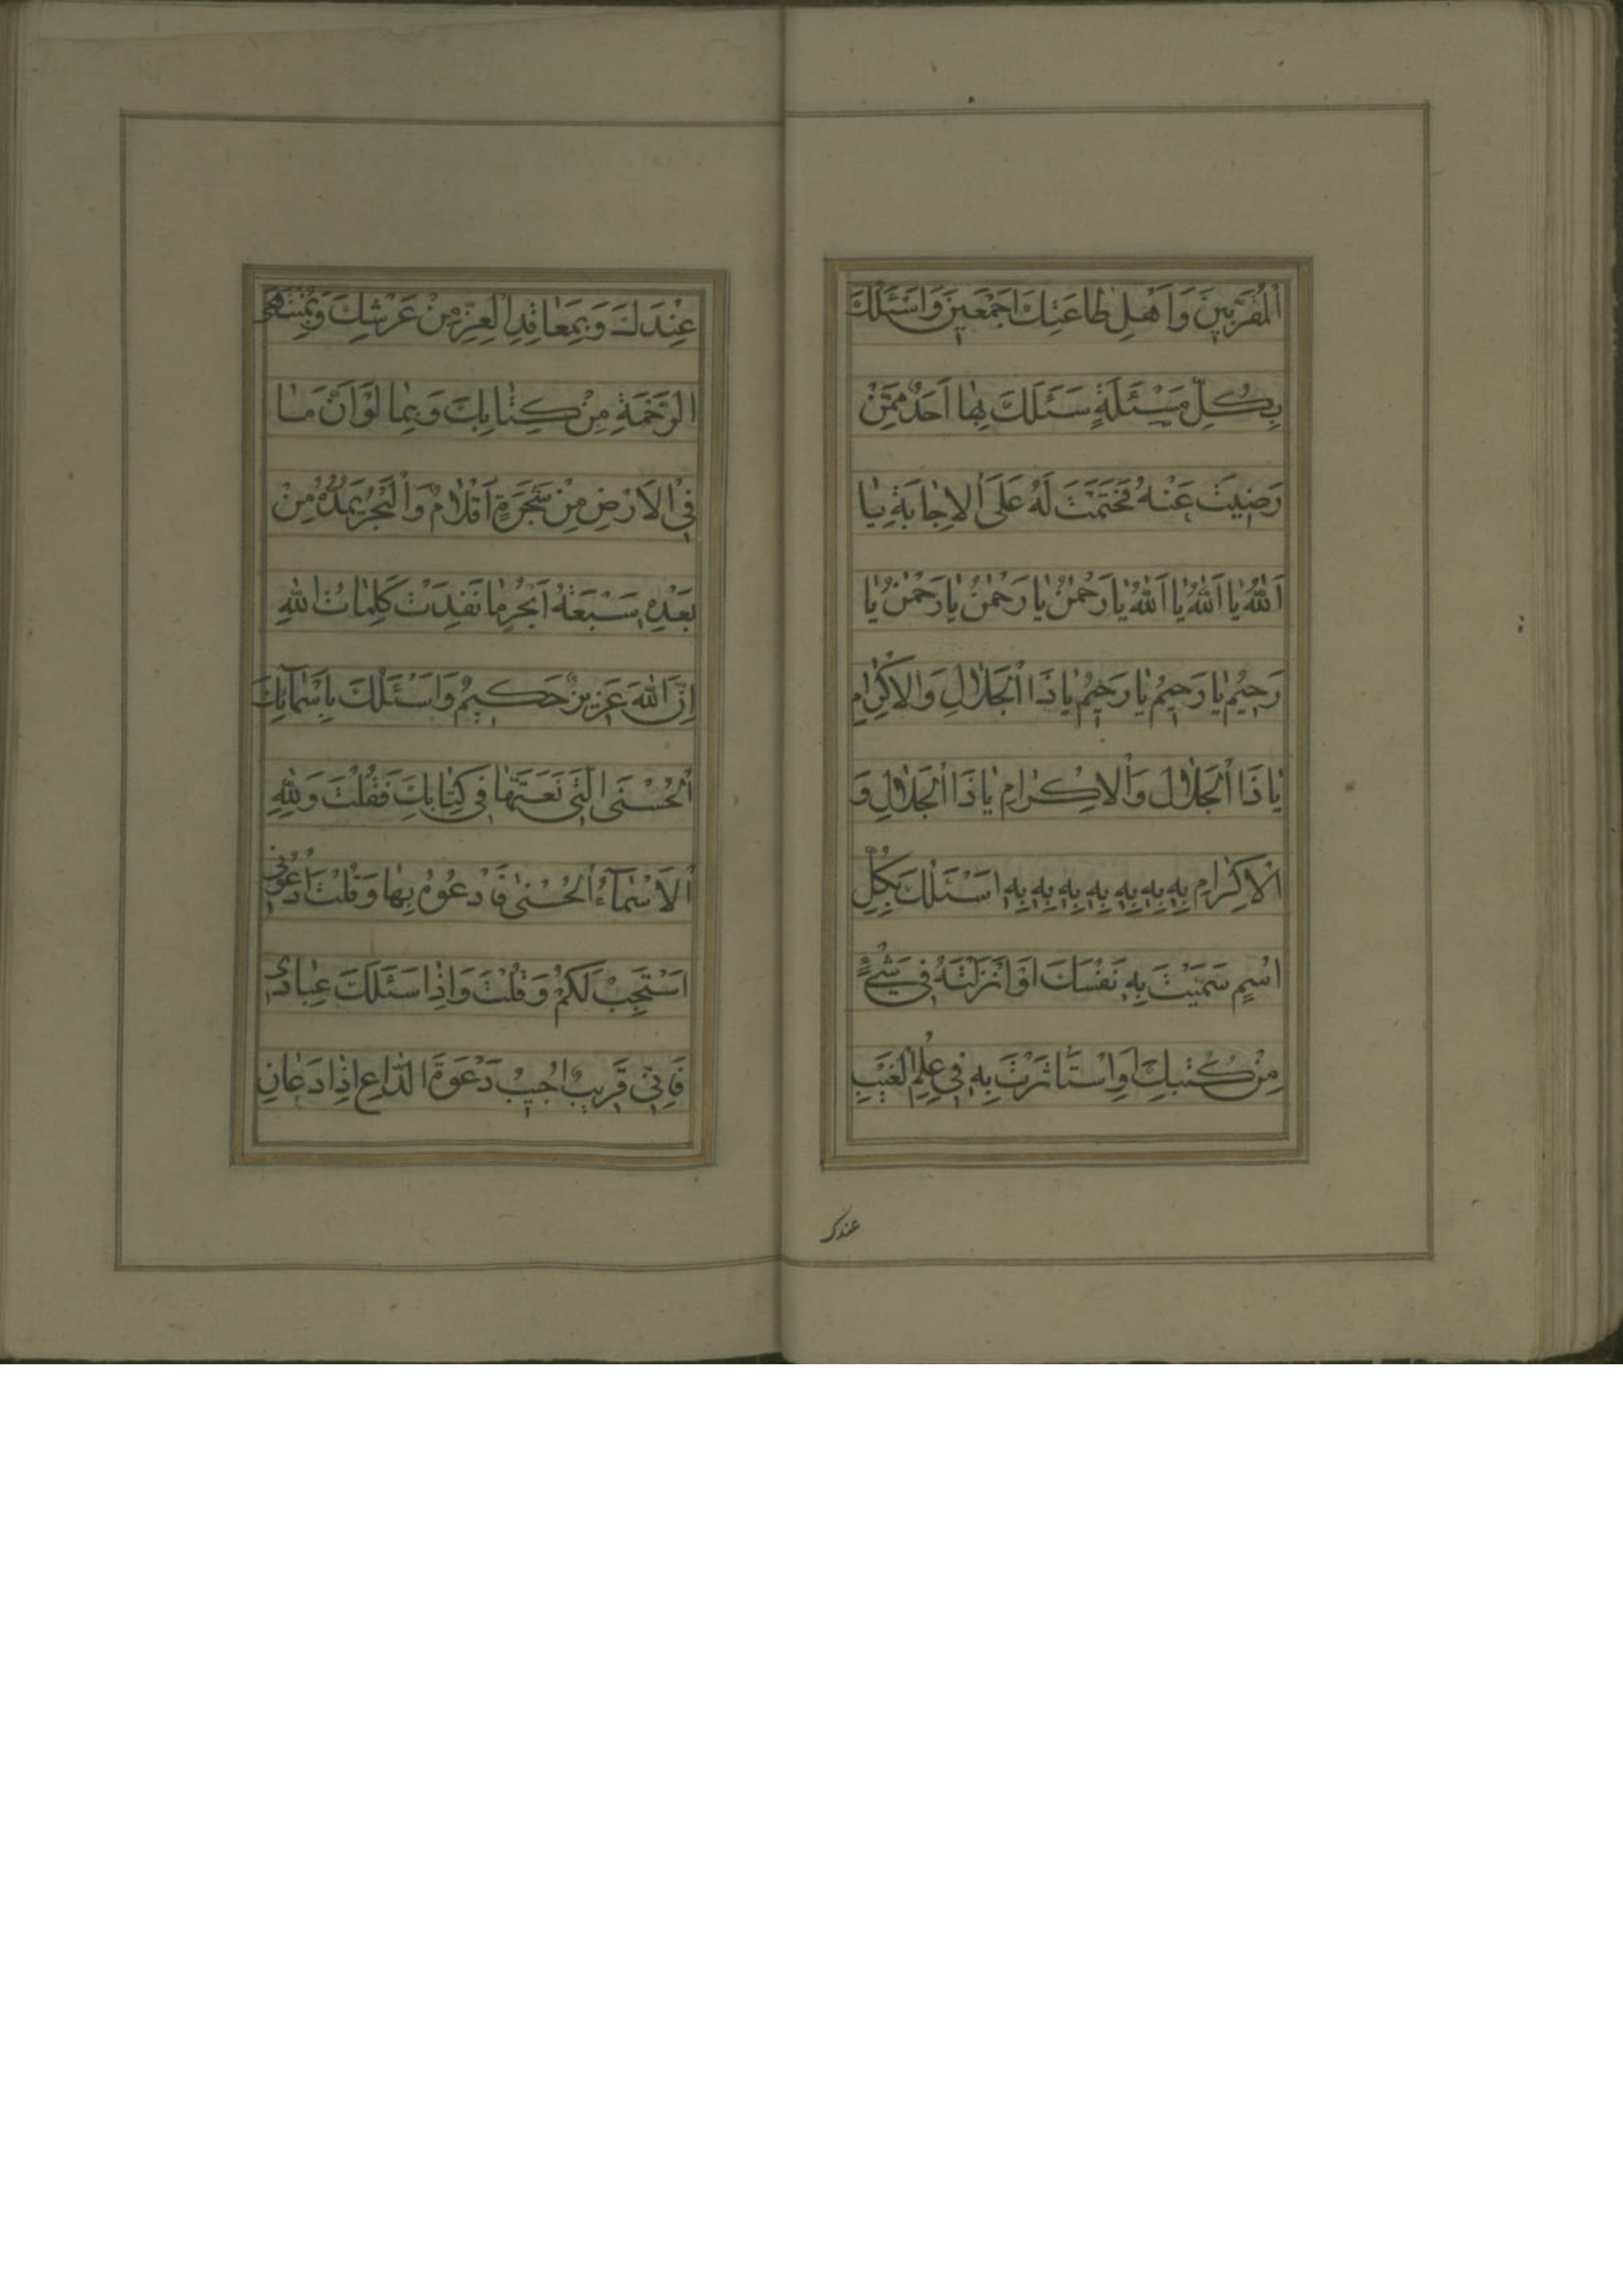 اَلْمُقَرَّبينَ وَاَهْلِ طاعَتِكَ اَجْمَعينَ وَاَسْئَلُكَ
بِكُلِّ مَسْئَلَةٍ سَئَلَكَ بِها اَحَدٌ مِمَّنْ
رَضِيتَ عَنْهُ فَخَتَمْتَ لَهُ عَلَى الْاِجابَةِ يا
اَللّٰهُ يا اَللّٰهُ يا اَللّٰهُ يا رَحْمٰنُ يا رَحْمٰنُ يا رَحْمٰنُ يا
رَحيمُ يا رَحيمُ يا رَحيمُ يا ذَا الْجَلالِ وَالْاِكْرامِ
يا ذَا الْجَلالِ وَالْاِكْرامِ يا ذَا الْجَلالِ وَ
الْاِكْرامِ بِهِ بِهِ بِهِ بِهِ بِهِ بِهِ بِهِ اَسْئَلُكَ بِكُلِّ
اسْمٍ سَمَّيْتَ بِهِ نَفْسَكَ اَوْ اَنْزَلْتَهُ فى شَىْءٍ
مِنْ كُتُبِكَ اَوِ اسْتَأْثَرْتَ بِهِ فى عِلْمِ الْغَيْبِ
عندك
عِنْدَكَ وَبِمَعاقِدِ الْعِزِّ مِنْ عَرْشِكَ وَبِمُنْتَهَى
الرَّحْمَةِ مِنْ كِتابِكَ وَبِما لَوْ اَنَّ ما
فِى الْاَرْضِ مِنْ شَجَرَةٍ اَقْلامٌ وَالْبَحْرُ يَمُدُّهُ مِنْ
بَعْدِهِ سَبْعَةُ اَبْحُرٍ ما نَفِدَتْ كَلِماتُ اللّٰهِ
اِنَّ اللّٰهَ عَزيزٌ حَكيمٌ وَاَسْئَلُكَ بِاَسْمآئِكَ
الْحُسْنَى الَّتى نَعَتَّها فى كِتابِكَ فَقُلْتَ وَلِلّٰهِ
الْاَسْمآءُ الْحُسْنىٰ فَادْعُوهُ بِها وَقُلْتَ ادْعُونى
اَسْتَجِبْ لَكُمْ وَقُلْتَ وَاِذا سَئَلَكَ عِبادى
فَاِنّى قَريبٌ اُجيبُ دَعْوَةَ الدّاعِ اِذا دَعانِ